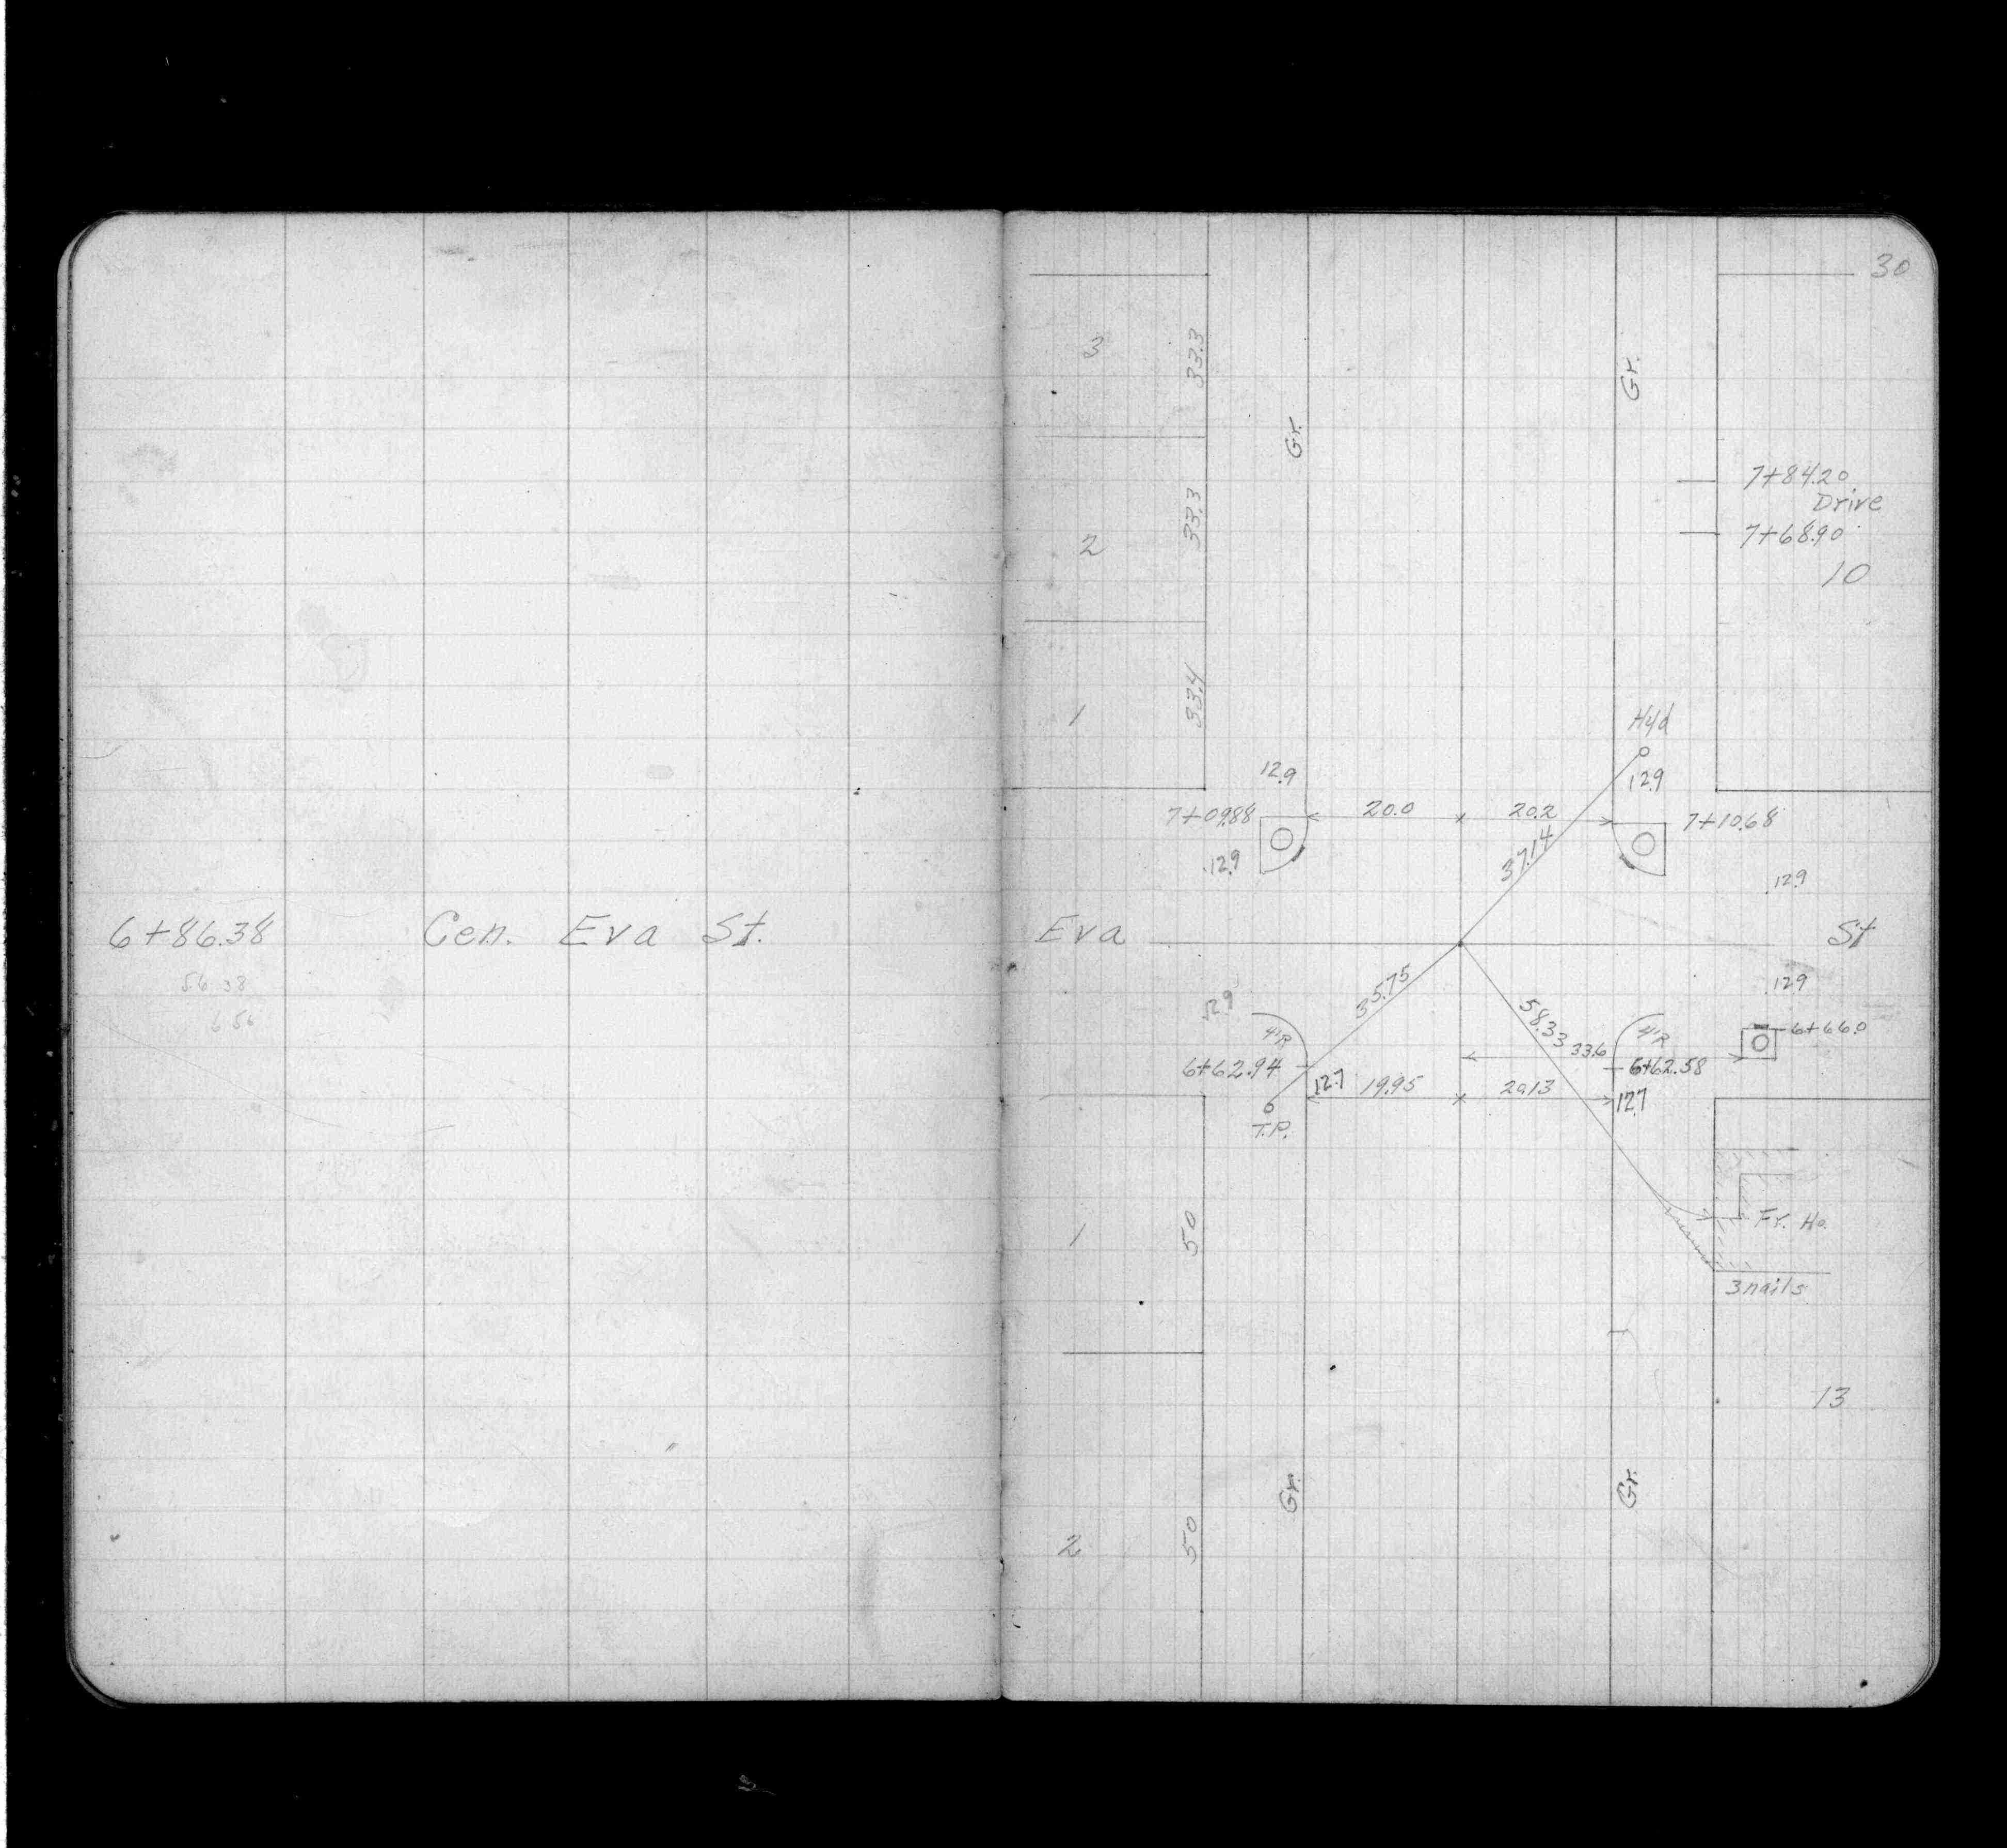 6+86.38 Cen. Eva St.
56.38
6 56
30
3 33.3 Gr. Gr.
7+84.20
Drive
2 33.3 7+68.90
10
1 33.4 Hyd
12.9 12.9
7+09.88 20.0 20.2 7+10.68
12.9 37.14 12.9
Eva St
12.9 35.75 58.33 12.9
4'R 33.6 4'R 6+66.0
6+62.94 6+62.58
12.7 19.95 20.13 12.7
T.P.
1 50 Fr. Ho.
3 nails
13
Gr. Gr.
2 50